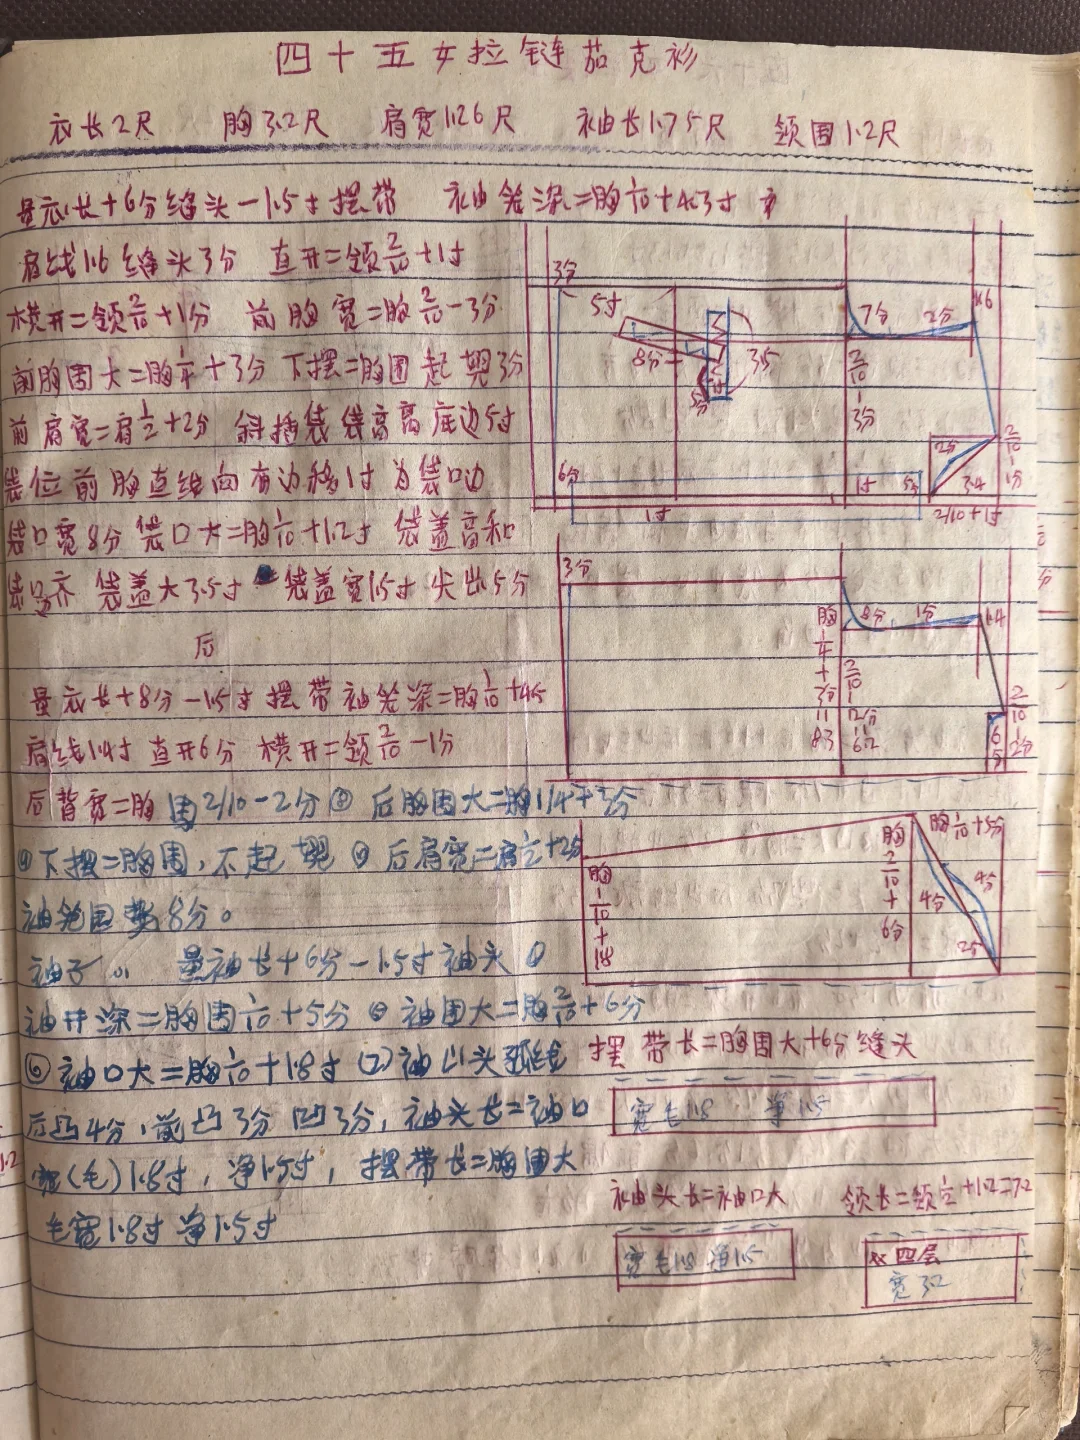 四十五女拉链茄克衫
衣长2尺 胸3.2尺 肩宽1.26尺 袖长1.75尺 领围1.2尺
量衣长+6分缝头-1.5寸摆带 袖笼深=胸1/10+4.3寸
肩线1.6 缝头3分 直开=领2/10+1寸
横开=领2/10+1分 前胸宽=胸2/10-3分
前胸围大=胸1/4+3分 下摆=胸围起翘3分
前肩宽=肩1/2+2分 斜插袋袋高高底边5寸
袋位前胸直线向有边移1寸为袋口边
袋口宽8分 袋口大=胸1/10+1.2寸 袋盖高和
袋口齐 袋盖大3.5寸 袋盖宽1.5寸 尖出5分
后
量衣长+8分-1.5寸摆带袖笼深=胸1/10+4.5
肩线1.4寸 直开6分 横开=领2/10-1分
后背宽=胸围2/10-2分 后胸围大=胸1/4+3分
下摆=胸围,不起翘 后肩宽=肩1/2+2分
袖笼凹势8分。
袖子 量袖长+6分-1.5寸袖头
袖开深=胸围1/10+5分 袖围大=胸2/10+6分
袖口大=胸1/10+1.8寸 (2)袖山头弧线
后凸4分,前凸3分凹3分,袖头长=袖口
宽(毛)1.8寸,净1.5寸,摆带长=胸围大
毛宽1.8寸 净1.5寸
3分
5寸
7分 2分
1.6
8分
3.5
2/10-3分
6分
1寸
1寸
2分
3.4
2/10+1寸
2/10 1分
3分
胸1/4+3分=83
8分 1分
1.4
2/10-2分=62
2/10-1分
6分
胸1/10+1.8
胸2/10+6分
胸1/10+5分
4分
4分
2.5
摆带长=胸围大+6分缝头
宽毛1.8 净1.5
袖头长=袖口大 领长=领1/2+1.2=7.2
宽毛1.8 净1.5
双四层
宽3.2